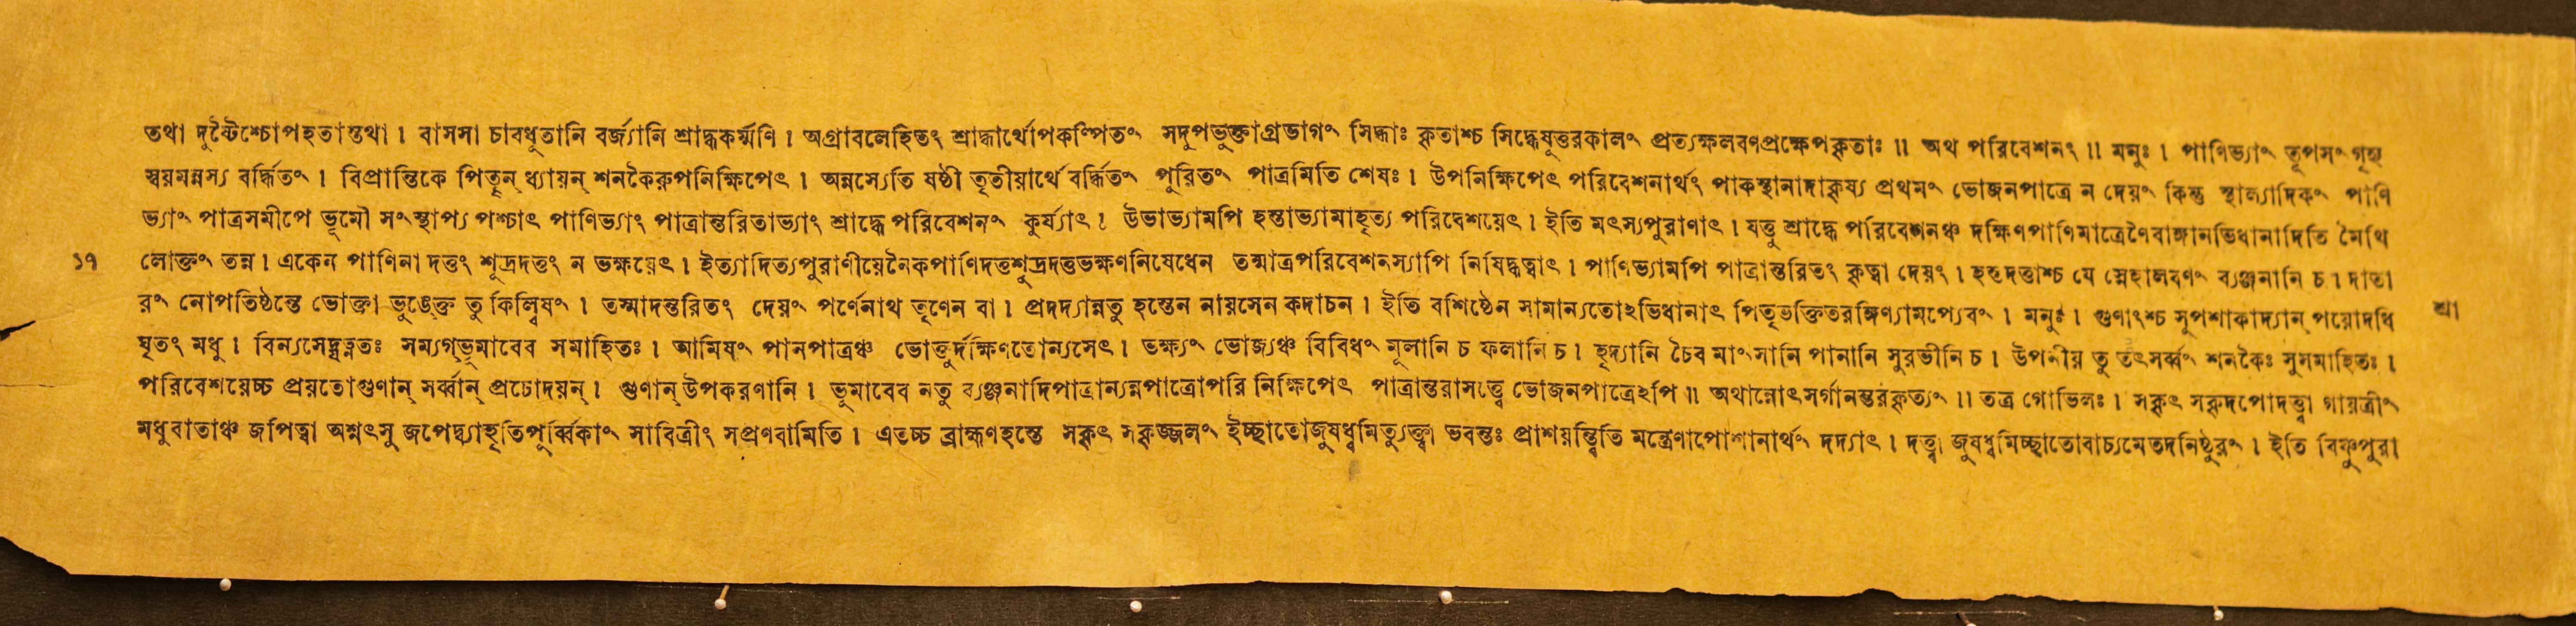 তথা দুষ্টৈশ্চোপহতান্তথা। বাসসা চাবধূতানি বর্জ্যানি শ্রাদ্ধকর্ম্মণি। অগ্রাবলেহিতং শ্রাদ্ধার্থোপকল্পিতং সদুপভুক্তাগ্রভাগং সিদ্ধাঃ কৃতাশ্চ সিদ্ধেষূত্তরকালং প্রত্যক্ষলবণপ্রক্ষেপকৃতাঃ॥ অথ পরিবেশনং॥ মনুঃ। পাণিভ্যাং তূপসং গৃহ্য
স্বয়মন্নস্য বর্দ্ধিতং। বিপ্রান্তিকে পিতৄন্ ধ্যায়ন্ শনকৈরুপনিক্ষিপেৎ। অন্নস্যেতি ষষ্ঠী তৃতীয়ার্থে বর্দ্ধিতং পুরিতং পাত্রমিতি শেষঃ। উপনিক্ষিপেৎ পরিবেশনার্থং পাকস্থানাদাকৃষ্য প্রথমং ভোজনপাত্রে ন দেয়ং কিন্তু স্থাল্যাদিকং পাণি
ভ্যাং পাত্রসমীপে ভূমৌ সংস্থাপ্য পশ্চাৎ পাণিভ্যাং পাত্রান্তরিতাভ্যাং শ্রাদ্ধে পরিবেশনং কুর্য্যাৎ। উভাভ্যামপি হস্তাভ্যামাহৃত্য পরিবেশয়েৎ। ইতি মৎস্যপুরাণাৎ। যত্তু শ্রাদ্ধে পরিবেশনঞ্চ দক্ষিণপাণিমাত্রেণৈবাঙ্গানভিধানাদিতি মৈথি
১৭ লোক্তং তন্ন। একেন পাণিনা দত্তং শূদ্রদত্তং ন ভক্ষয়েৎ। ইত্যাদিত্যপুরাণীয়েনৈকপাণিদত্তশূদ্রদত্তভক্ষণনিষেধেন তন্মাত্রপরিবেশনস্যাপি নিষিদ্ধত্বাৎ। পাণিভ্যামপি পাত্রান্তরিতং কৃত্বা দেয়ং। হস্তদত্তাশ্চ যে স্নেহালবণং ব্যঞ্জনানি চ। দাতা
রং নোপতিষ্ঠন্তে ভোক্তা ভুঙেক্ত তু কিল্বিষং। তস্মাদন্তরিতং দেয়ং পর্ণেনাথ তৃণেন বা। প্রদদ্যান্নতু হস্তেন নায়সেন কদাচন। ইতি বশিষ্ঠেন সামান্যতোঽভিধানাৎ পিতৃভক্তিতরঙ্গিণ্যামপ্যেবং। মনুঃ। গুণাংশ্চ সুপশাকাদ্যান্ পয়োদধি শ্রা
ঘৃতং মধু। বিন্যসেদ্প্রযত্নতঃ সম্যগ্ভূমাবেব সমাহিতঃ। আমিষং পানপাত্রঞ্চ ভোক্তুর্দক্ষিণতোন্যসেৎ। ভক্ষ্যং ভোজ্যঞ্চ বিবিধং মূলানি চ ফলানি চ। হৃদ্যানি চৈব মাংসানি পানানি সুরভীনি চ। উপনীয় তু তৎসর্ব্বং শনকৈঃ সুসমাহিতঃ।
পরিবেশয়েচ্চ প্রয়তোগুণান্ সর্ব্বান্ প্রচোদয়ন্। গুণান্ উপকরণানি। ভূমাবেব নতু ব্যঞ্জনাদিপাত্রান্যন্নপাত্রোপরি নিক্ষিপেৎ পাত্রান্তরাসত্ত্বে ভোজনপাত্রেঽপি॥ অথান্নোৎসর্গানন্তরংকৃত্যং॥ তত্র গোভিলঃ। সকৃৎ সকৃদপোদত্ত্বা গায়ত্রীং
মধুবাতাঞ্চ জপিত্বা অশ্নৎসু জপেদ্ব্যাহৃতিপূর্ব্বিকাং সাবিত্রীং সপ্রণবামিতি। এতচ্চ ব্রাহ্মণহস্তে সকৃৎ সকৃজ্জলং ইচ্ছাতোজুষধ্বমিত্যুক্ত্বা ভবন্তঃ প্রাশয়ন্ত্বিতি মন্ত্রেণাপোশানার্থং দদ্যাৎ। দত্ত্বা জুষধ্বমিচ্ছাতোবাচ্যমেতদনিষ্ঠুরং। ইতি বিষ্ণুপুরা